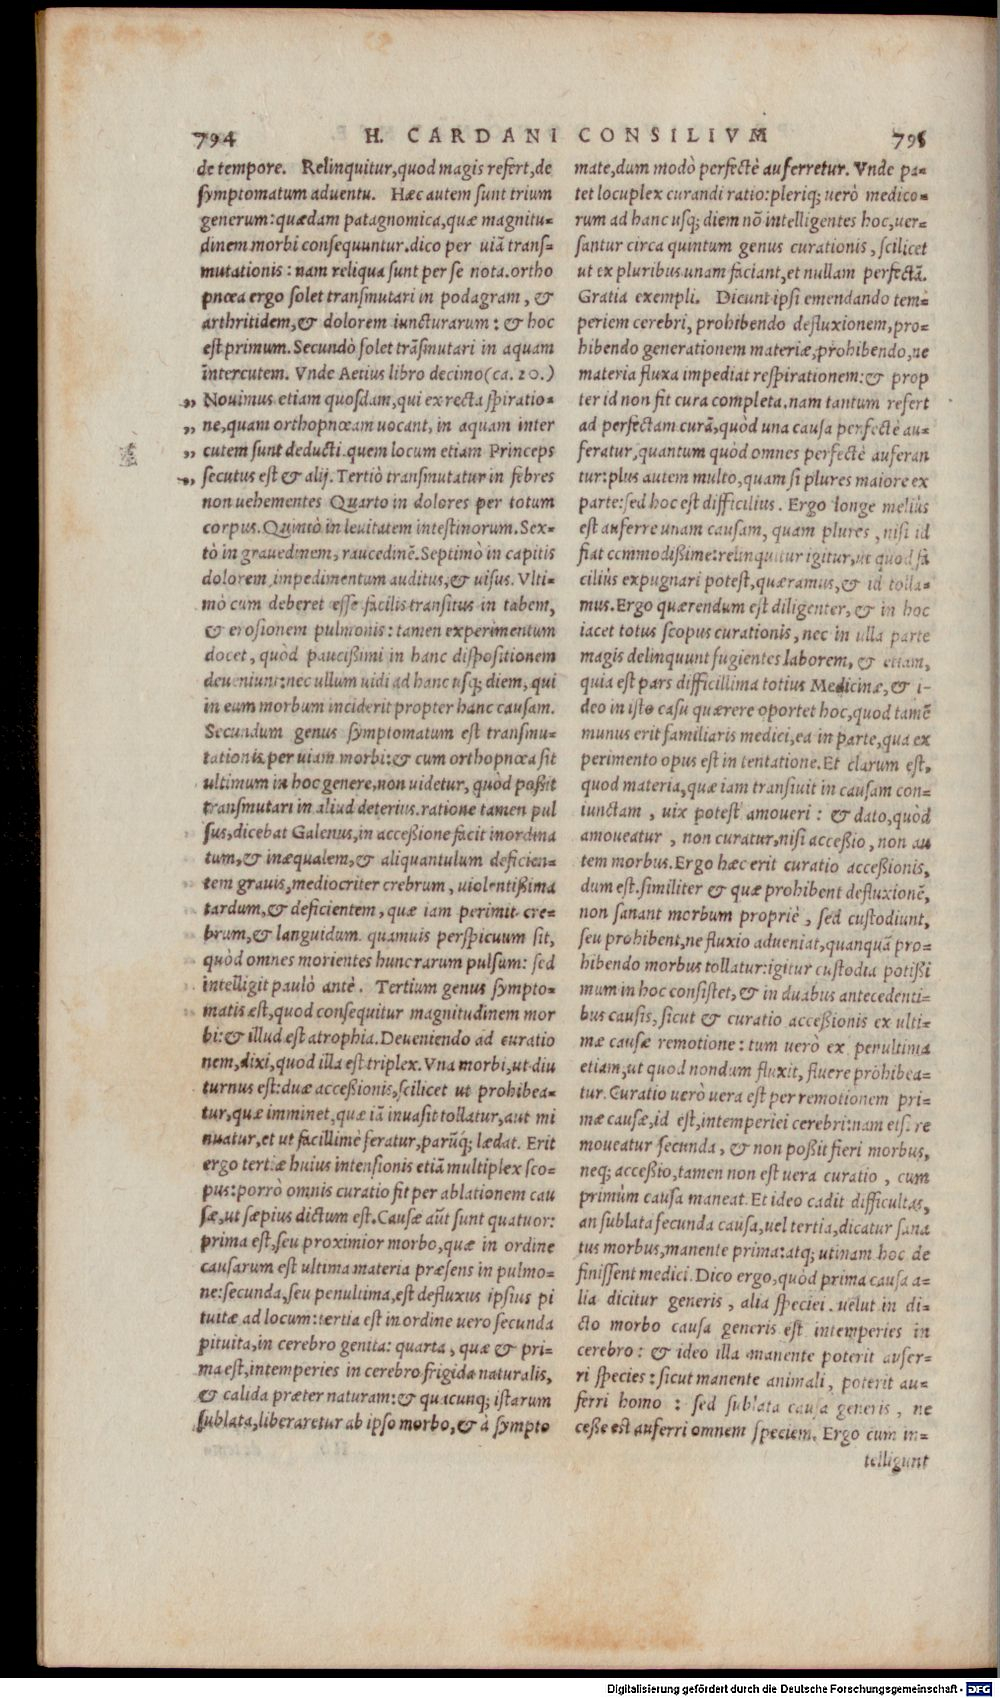 794 H. CARDANI CONSILIVM 795
de tempore. Relinquitur, quod magis refert, de
symptomatum aduentu. Hæc autem sunt trium
generum: quædam patagnomica, quæ magnitu-
dinem morbi consequuntur. dico per uiã trans-
mutationis: nam reliqua sunt per se nota. ortho
pnœa ergo solet transmutari in podagram, &
arthritidem, & dolorem iuncturarum: & hoc
est primum. Secundò solet trãsmutari in aquam
intercutem. Vnde Aetius libro decimo (ca. 20.)
„ Nouimus etiam quosdam, qui ex recta spiratio-
„ ne, quam orthopnœam uocant, in aquam inter
„ cutem sunt deducti. quem locum etiam Princeps
„ secutus est & alij. Tertiò transmutatur in febres
non uehementes Quarto in dolores per totum
corpus. Quintò in leuitatem intestinorum. Sex-
tò in grauedinem, raucedinẽ. Septimò in capitis
dolorem impedimentum auditus, & uisus. Vlti-
mò cum deberet esse facilis transitus in tabem,
& erosionem pulmonis: tamen experimentum
docet, quòd paucißimi in hanc dispositionem
deueniunt: nec ullum uidi ad hanc usq; diem, qui
in eum morbum inciderit propter hanc causam.
Secundum genus symptomatum est transmu-
tationis per uiam morbi: & cum orthopnœa sit
ultimum in hoc genere, non uidetur, quòd poßit
transmutari in aliud deterius. ratione tamen pul
sus, dicebat Galenus, in acceßione facit inordina
tum, & inæqualem, & aliquantulum deficien-
tem grauis, mediocriter crebrum, uiolentißima
tardum, & deficientem, quæ iam perimit cre-
brum, & languidum. quamuis perspicuum sit,
quòd omnes morientes hunc rarum pulsum: sed
intelligit paulò antè. Tertium genus sympto-
matis æst, quod consequitur magnitudinem mor
bi: & illud est atrophia. Deueniendo ad curatio
nem, dixi, quod illa est triplex. Vna morbi, ut diu
turnus est: duæ acceßionis, scilicet ut prohibea-
tur, quæ imminet, quæ iã inuasit tollatur, aut mi
nuatur, et ut facillimè feratur, parũq; lædat. Erit
ergo tertiæ huius intensionis etiã multiplex sco-
pus: porrò omnis curatio fit per ablationem cau
sæ, ut sæpius dictum est. Causæ aũt sunt quatuor:
prima est, seu proximior morbo, quæ in ordine
causarum est ultima materia præsens in pulmo-
ne: secunda, seu penultima, est defluxus ipsius pi
tuitæ ad locum: tertia est in ordine uero secunda
pituita, in cerebro genita: quarta, quæ & pri-
ma est, intemperies in cerebro frigida naturalis,
& calida præter naturam: & quacunq; istarum
sublata, liberaretur ab ipso morbo, & à sympto
mate, dum modò perfectè auferretur. Vnde pa-
tet locuplex curandi ratio: pleriq; uerò medico-
rum ad hanc usq; diem nõ intelligentes hoc, uer-
santur circa quintum genus curationis, scilicet
ut ex pluribus unam faciant, et nullam perfectã.
Gratia exempli. Dicunt ipsi emendando tem-
periem cerebri, prohibendo defluxionem, pro-
hibendo generationem materiæ, prohibendo, ne
materia fluxa impediat respirationem: & prop
ter id non fit cura completa. nam tantum refert
ad perfectam curã, quòd una causa perfectè au-
feratur, quantum quòd omnes perfectè auferan
tur: plus autem multo, quam si plures maiore ex
parte: sed hoc est difficilius. Ergo longe meliùs
est auferre unam causam, quam plures, nisi id
fiat commodißime: relinquitur igitur, ut quod fa
ciliùs expugnari potest, quæramus, & id tolla-
mus. Ergo quærendum est diligenter, & in hoc
iacet totus scopus curationis, nec in ulla parte
magis delinquunt fugientes laborem, & etiam,
quia est pars difficillima totius Medicinæ, & i-
deo in isto casu quærere oportet hoc, quod tamẽ
munus erit familiaris medici, ea in parte, qua ex
perimento opus est in tentatione. Et clarum est,
quod materia, quæ iam transiuit in causam con-
iunctam, uix potest amoueri: & dato, quòd
amoueatur, non curatur, nisi acceßio, non au
tem morbus. Ergo hæc erit curatio acceßionis,
dum est. similiter & quæ prohibent defluxionẽ,
non sanant morbum propriè, sed custodiunt,
seu prohibent, ne fluxio adueniat, quanquã pro-
hibendo morbus tollatur: igitur custodia potißi
mum in hoc consistet, & in duabus antecedenti-
bus causis, sicut & curatio acceßionis ex ulti-
mæ causæ remotione: tum uerò ex penultima
etiam, ut quod nondum fluxit, fluere prohibea-
tur. Curatio uerò uera est per remotionem pri-
mæ causæ, id est, intemperiei cerebri: nam etsi re
moueatur secunda, & non poßit fieri morbus,
neq; acceßio, tamen non est uera curatio, cum
primùm causa maneat. Et ideo cadit difficultas,
an sublata secunda causa, uel tertia, dicatur sana
tus morbus, manente prima: atq; utinam hoc de
finissent medici. Dico ergo, quòd prima causa a-
lia dicitur generis, alia speciei. uelut in di-
cto morbo causa generis est intemperies in
cerebro: & ideo illa manente poterit aufer-
ri species: sicut manente animali, poterit au-
ferri homo: sed sublata causa generis, ne
ceße est auferri omnem speciem. Ergo cum in-
telligunt
Digitalisierung gefördert durch die Deutsche Forschungsgemeinschaft - DFG